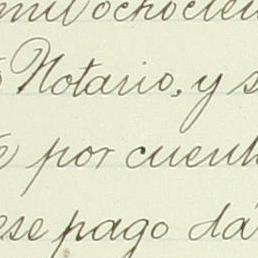 mil ochocien
Notario, y s
por cuent
ese pago dá